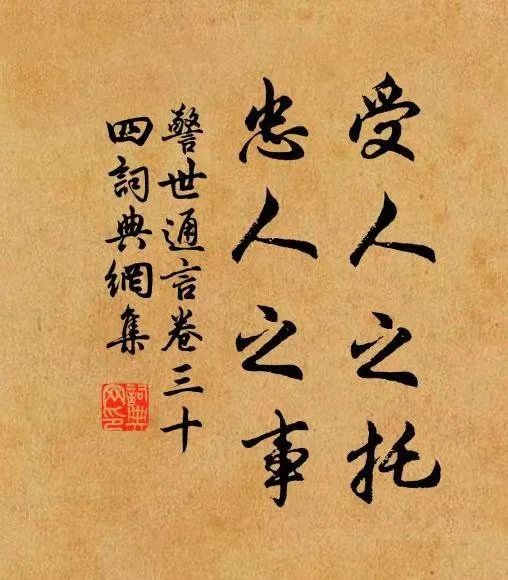 受人之托
忠人之事
警世通言卷三十
四詞典網集
詞典网印